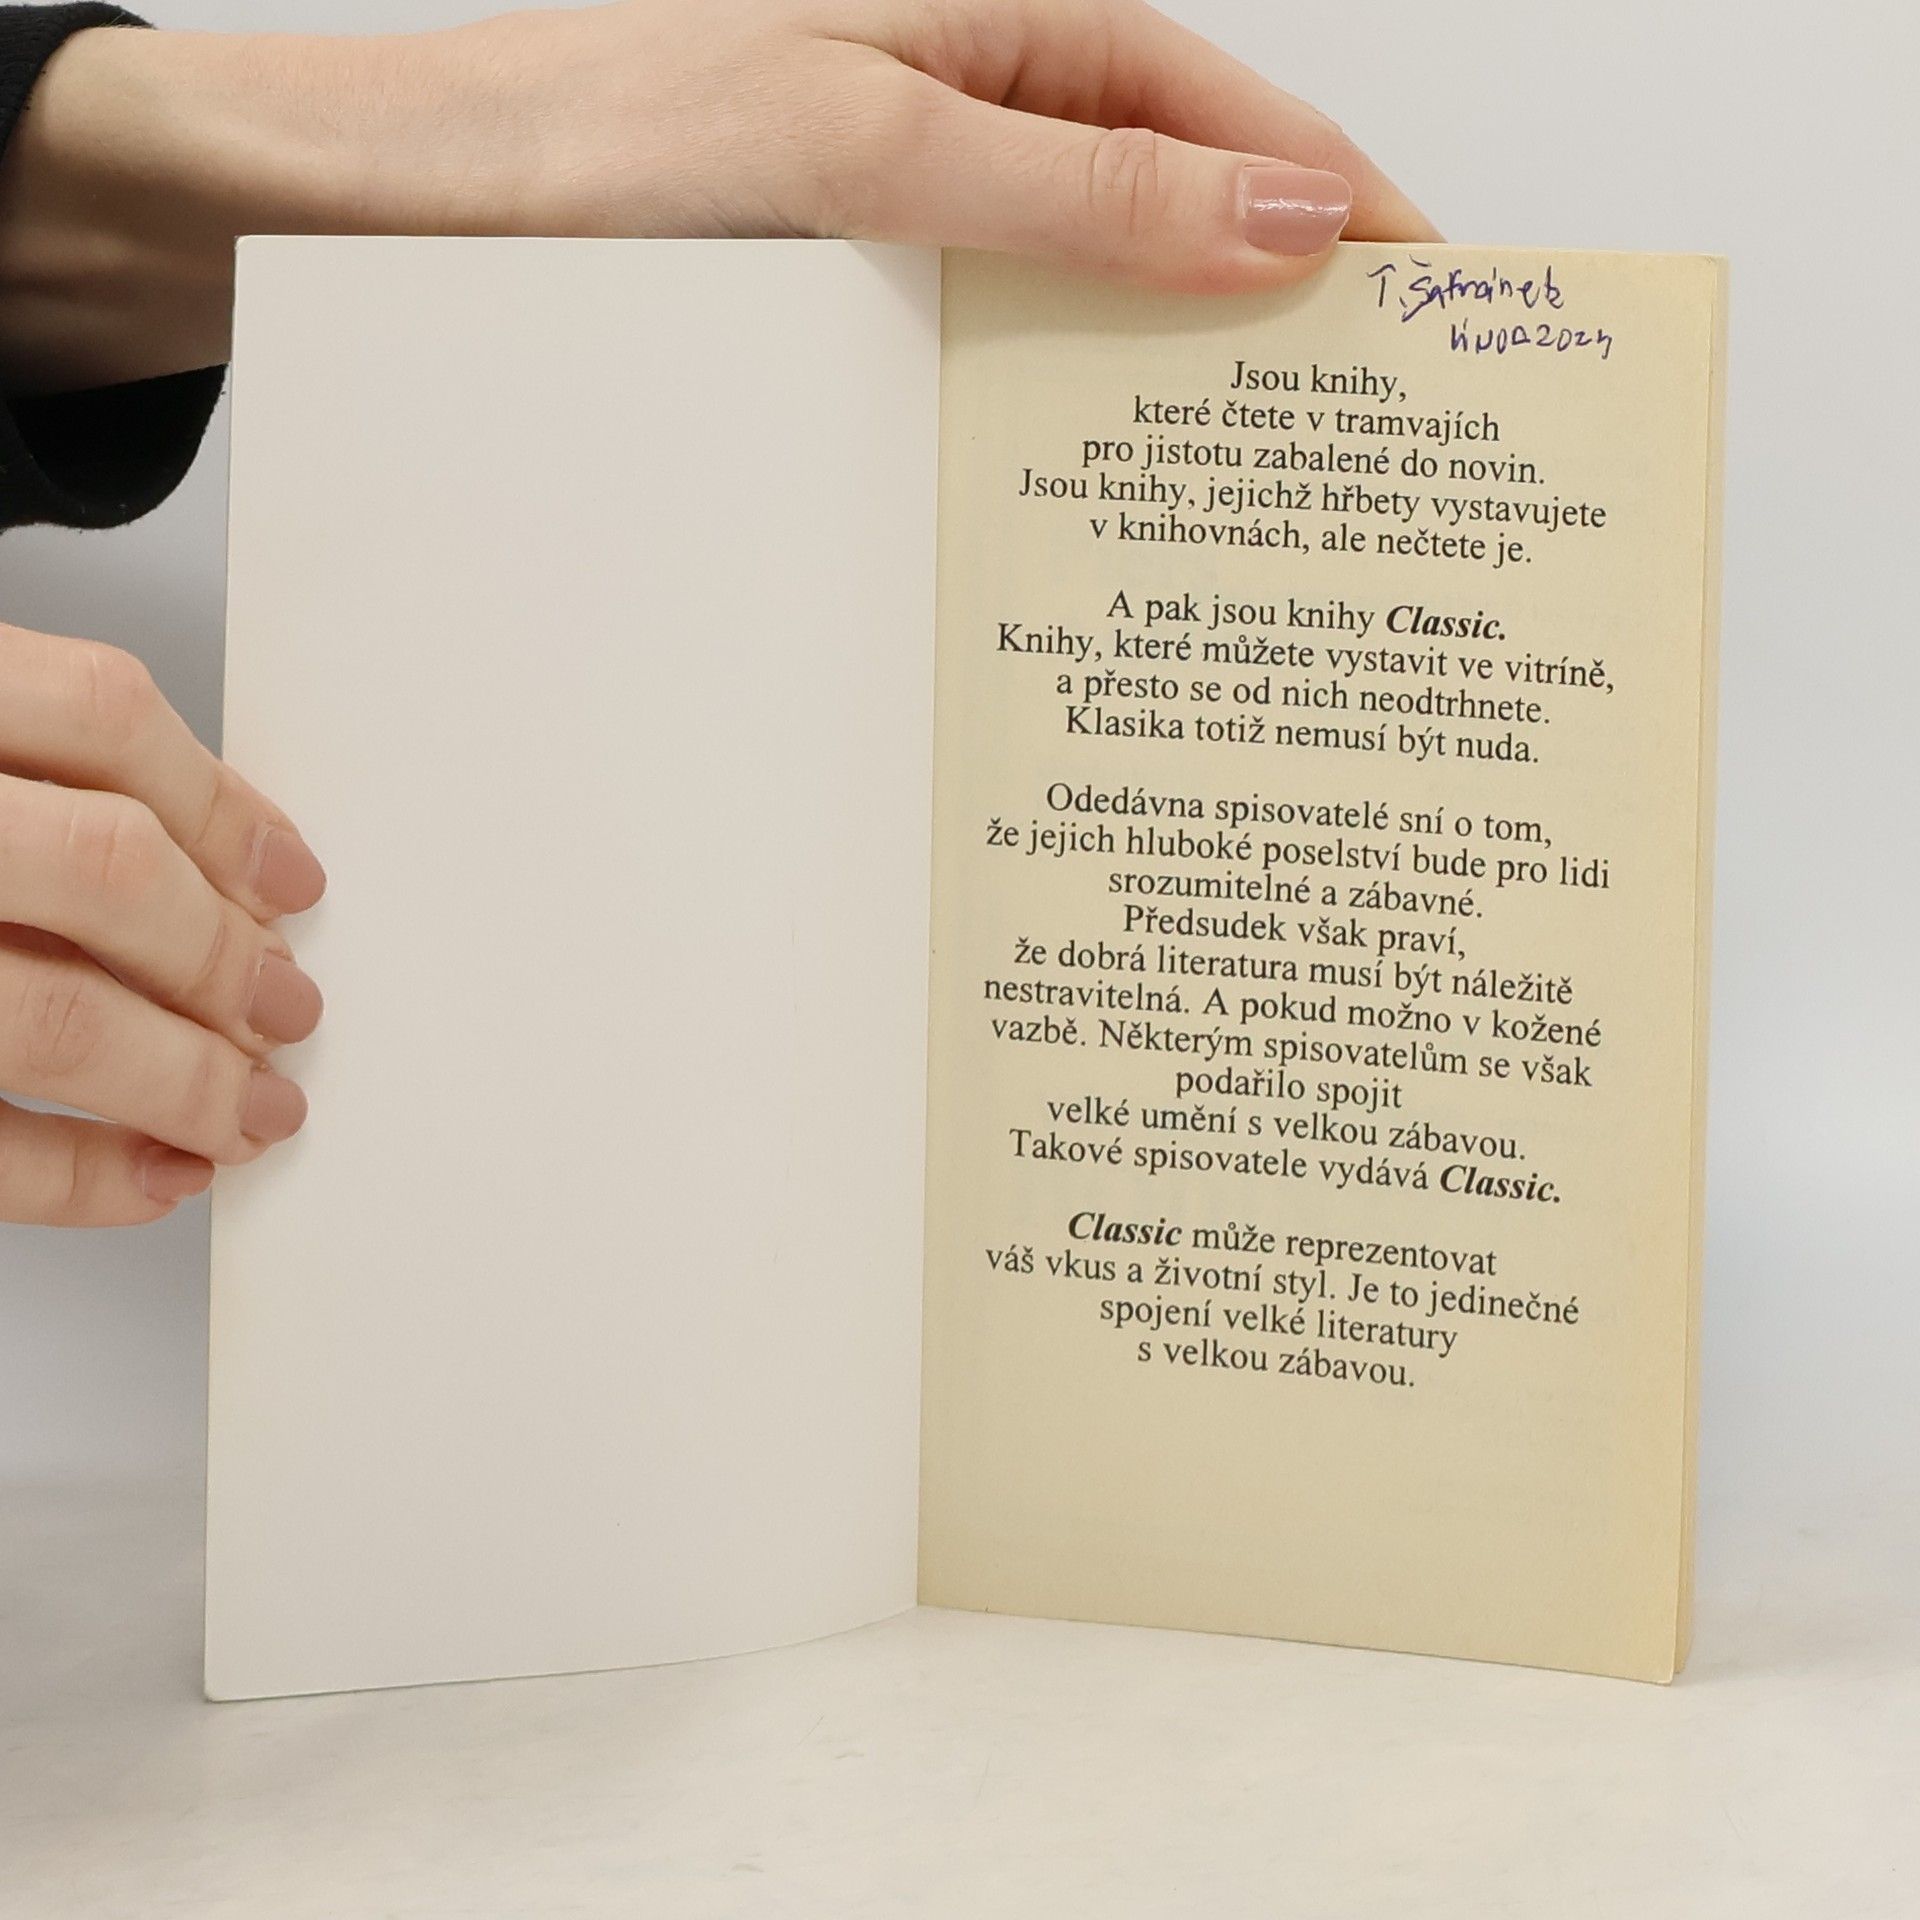 T. Šafránek
únor 2024
Jsou knihy,
které čtete v tramvajích
pro jistotu zabalené do novin.
Jsou knihy, jejichž hřbety vystavujete
v knihovnách, ale nečtete je.
A pak jsou knihy Classic.
Knihy, které můžete vystavit ve vitríně,
a přesto se od nich neodtrhnete.
Klasika totiž nemusí být nuda.
Odedávna spisovatelé sní o tom,
že jejich hluboké poselství bude pro lidi
srozumitelné a zábavné.
Předsudek však praví,
že dobrá literatura musí být náležitě
nestravitelná. A pokud možno v kožené
vazbě. Některým spisovatelům se však
podařilo spojit
velké umění s velkou zábavou.
Takové spisovatele vydává Classic.
Classic může reprezentovat
váš vkus a životní styl. Je to jedinečné
spojení velké literatury
s velkou zábavou.